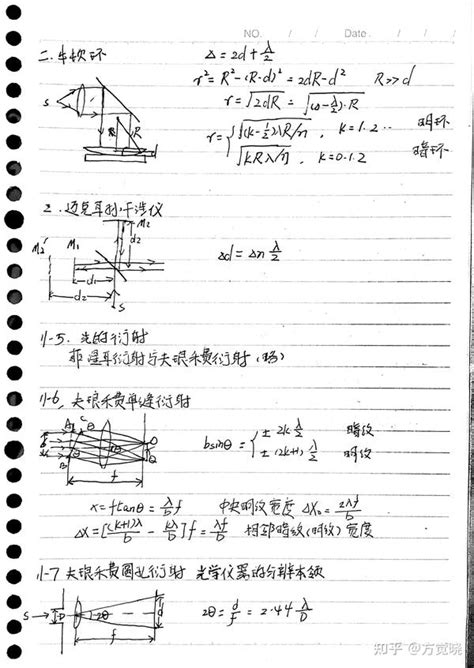 NO. / / Date. / /
二. 牛顿环
Δ = 2d + λ/2
r² = R² - (R-d)² = 2dR - d²  R >> d
r = √2dR = √(Δ - λ/2)·R
r = { √(k-½)λR/n , k=1.2... 明环
√kRλ/n , k=0.1.2 暗环
S R d
2. 迈克耳孙干涉仪
M₂' M₁ M₂ d₂
d₁
d₂ S
Δd = Δn λ/2
11-5. 光的衍射
菲涅耳衍射与夫琅禾费衍射(场)
11-6. 夫琅禾费单缝衍射
bsinθ = { ± 2k λ/2 暗纹
± (2k+1) λ/2 明纹
A C θ B O Q f
x = f tanθ = λ/b f 中央明纹宽度 Δx₀ = 2λf/b
Δx = [(k+1)λ/b - kλ/b] f = λf/b 相邻暗纹(明纹)宽度
11-7 夫琅禾费圆孔衍射 光学仪器的分辨本领
S D 2θ d f
2θ = d/f = 2.44 λ/D
知乎 @方觉晓